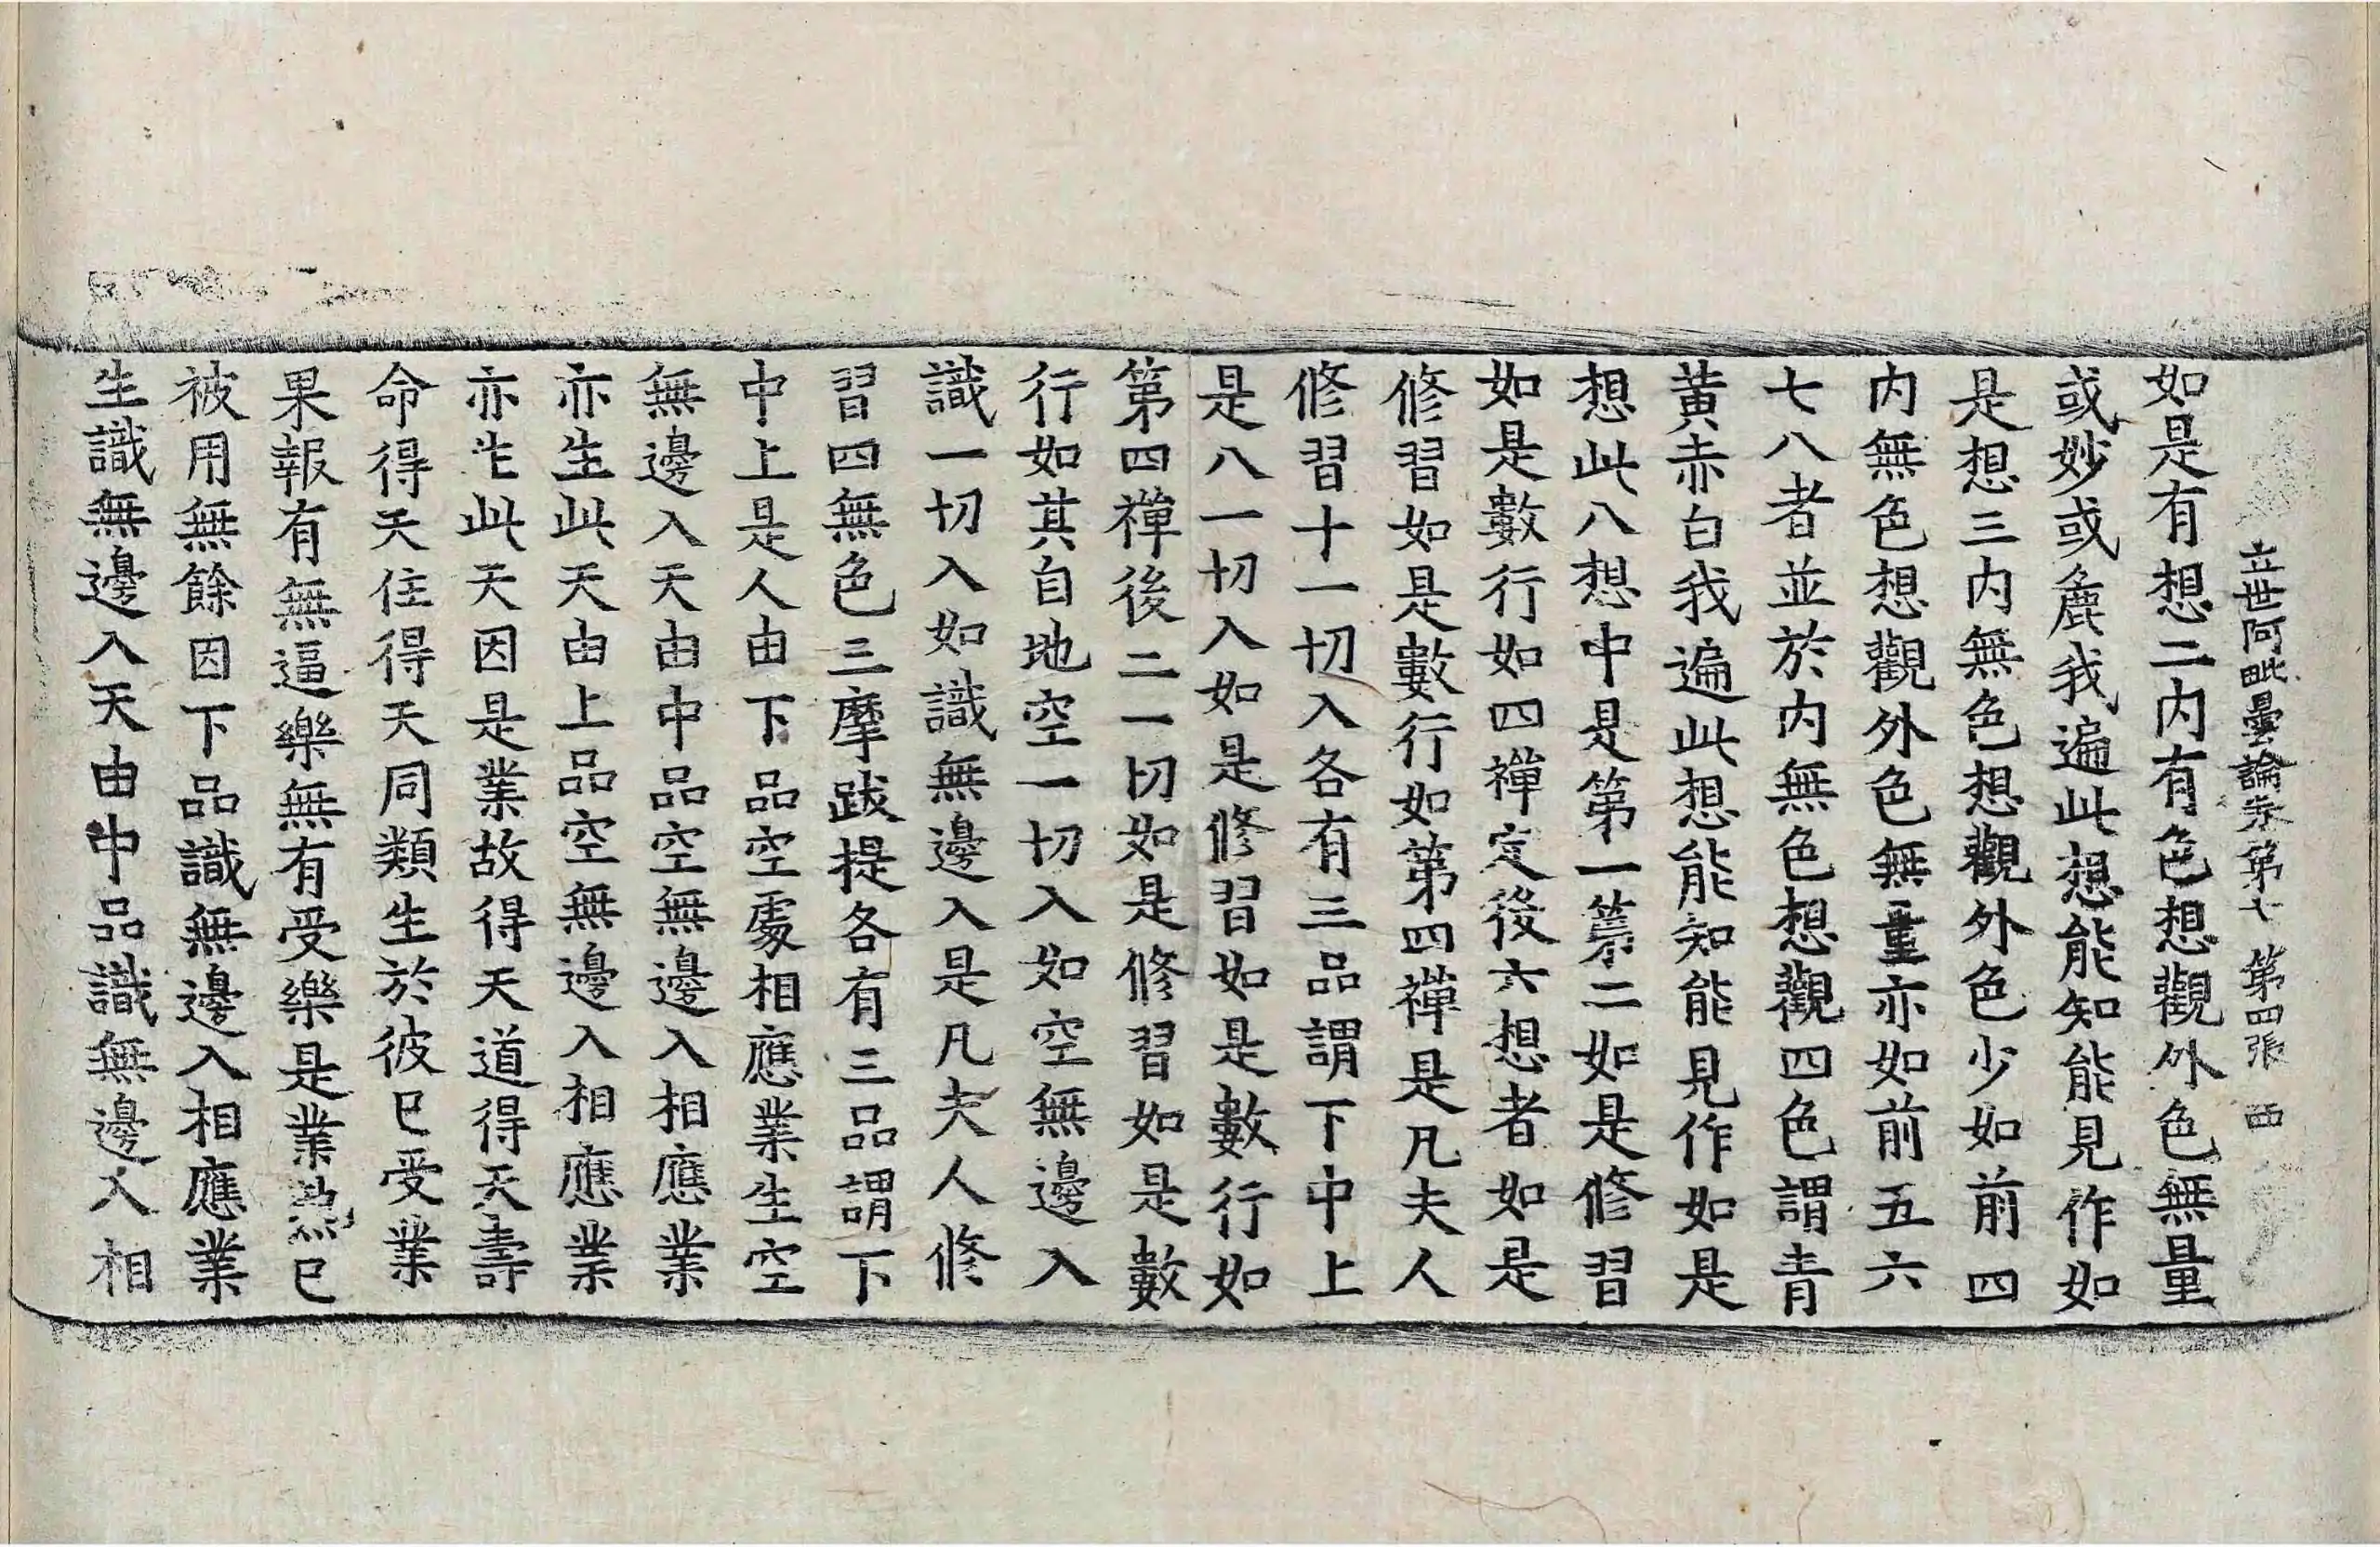 立世阿毗曇論卷第七 第四張 西
如是有想二內有色想觀外色無量
或妙或麁我遍此想能知能見作如
是想三內無色想觀外色少如前四
內無色想觀外色無重亦如前五六
七八者並於內無色想觀四色謂青
黃赤白我遍此想能知能見作如是
想此八想中是第一第二如是修習
如是數行如四禪定後六想者如是
修習如是數行如第四禪是凡夫人
修習十一切入各有三品謂下中上
是八一切入如是修習如是數行如
第四禪後二一切如是修習如是數
行如其自地空一切入如空無邊入
識一切入如識無邊入是凡夫人修
習四無色三摩跋提各有三品謂下
中上是人由下品空處相應業生空
無邊入天由中品空無邊入相應業
亦生此天由上品空無邊入相應業
亦生此天因是業故得天道得天壽
命得天住得天同類生於彼已受業
果報有無逼樂無有受樂是業熟已
被用無餘因下品識無邊入相應業
生識無邊入天由中品識無邊入相